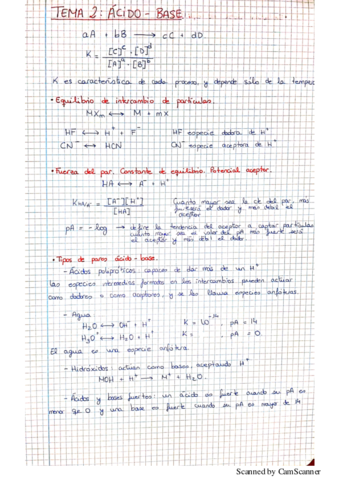 TEMA 2: ÁCIDO - BASE
aA + bB ⟷ cC + dD
K = [C]^c · [D]^d / [A]^a · [B]^b
K es característica de cada proceso, y depende sólo de la temper
• Equilibrio de intercambio de partículas.
MXm ⟷ M + mX
HF ⟷ H⁺ + F⁻ HF especie dadora de H⁺
CN⁻ ⟷ HCN CN⁻ especie aceptora de H⁺
• Fuerza del par. Constante de equilibrio. Potencial aceptor.
HA ⟷ A⁻ + H⁺
= [A⁻][H⁺] / [HA] Cuanto mayor sea la cte del par, más
será el dador y más débil el
aceptor
pA = - log → define la tendencia del aceptor a captar partículas
cuanto mayor sea el valor del pA más fuerte será
el aceptor y más débil el dador.
• Tipos de pares ácido - base.
- Ácidos polipróticos: capaces de dar más de un H⁺
las especies intermedias formadas en los intercambios pueden actuar
como dadores o como aceptores, y se les llama especies anfóteras.
- Agua
H₂O ⟷ OH⁻ + H⁺ K = 10⁻¹⁴ pA = 14
H₃O⁺ ⟷ H₂O + H⁺ K = pA = 0.
El agua es una especie anfótera.
- Hidróxidos: actúan como bases, aceptando H⁺
MOH + H⁺ ⟶ M⁺ + H₂O.
- Ácidos y bases fuertes: un ácido es fuerte cuando su pA es
menor que 0 y una base es fuerte cuando su pA es mayor de 14
Scanned by CamScanner